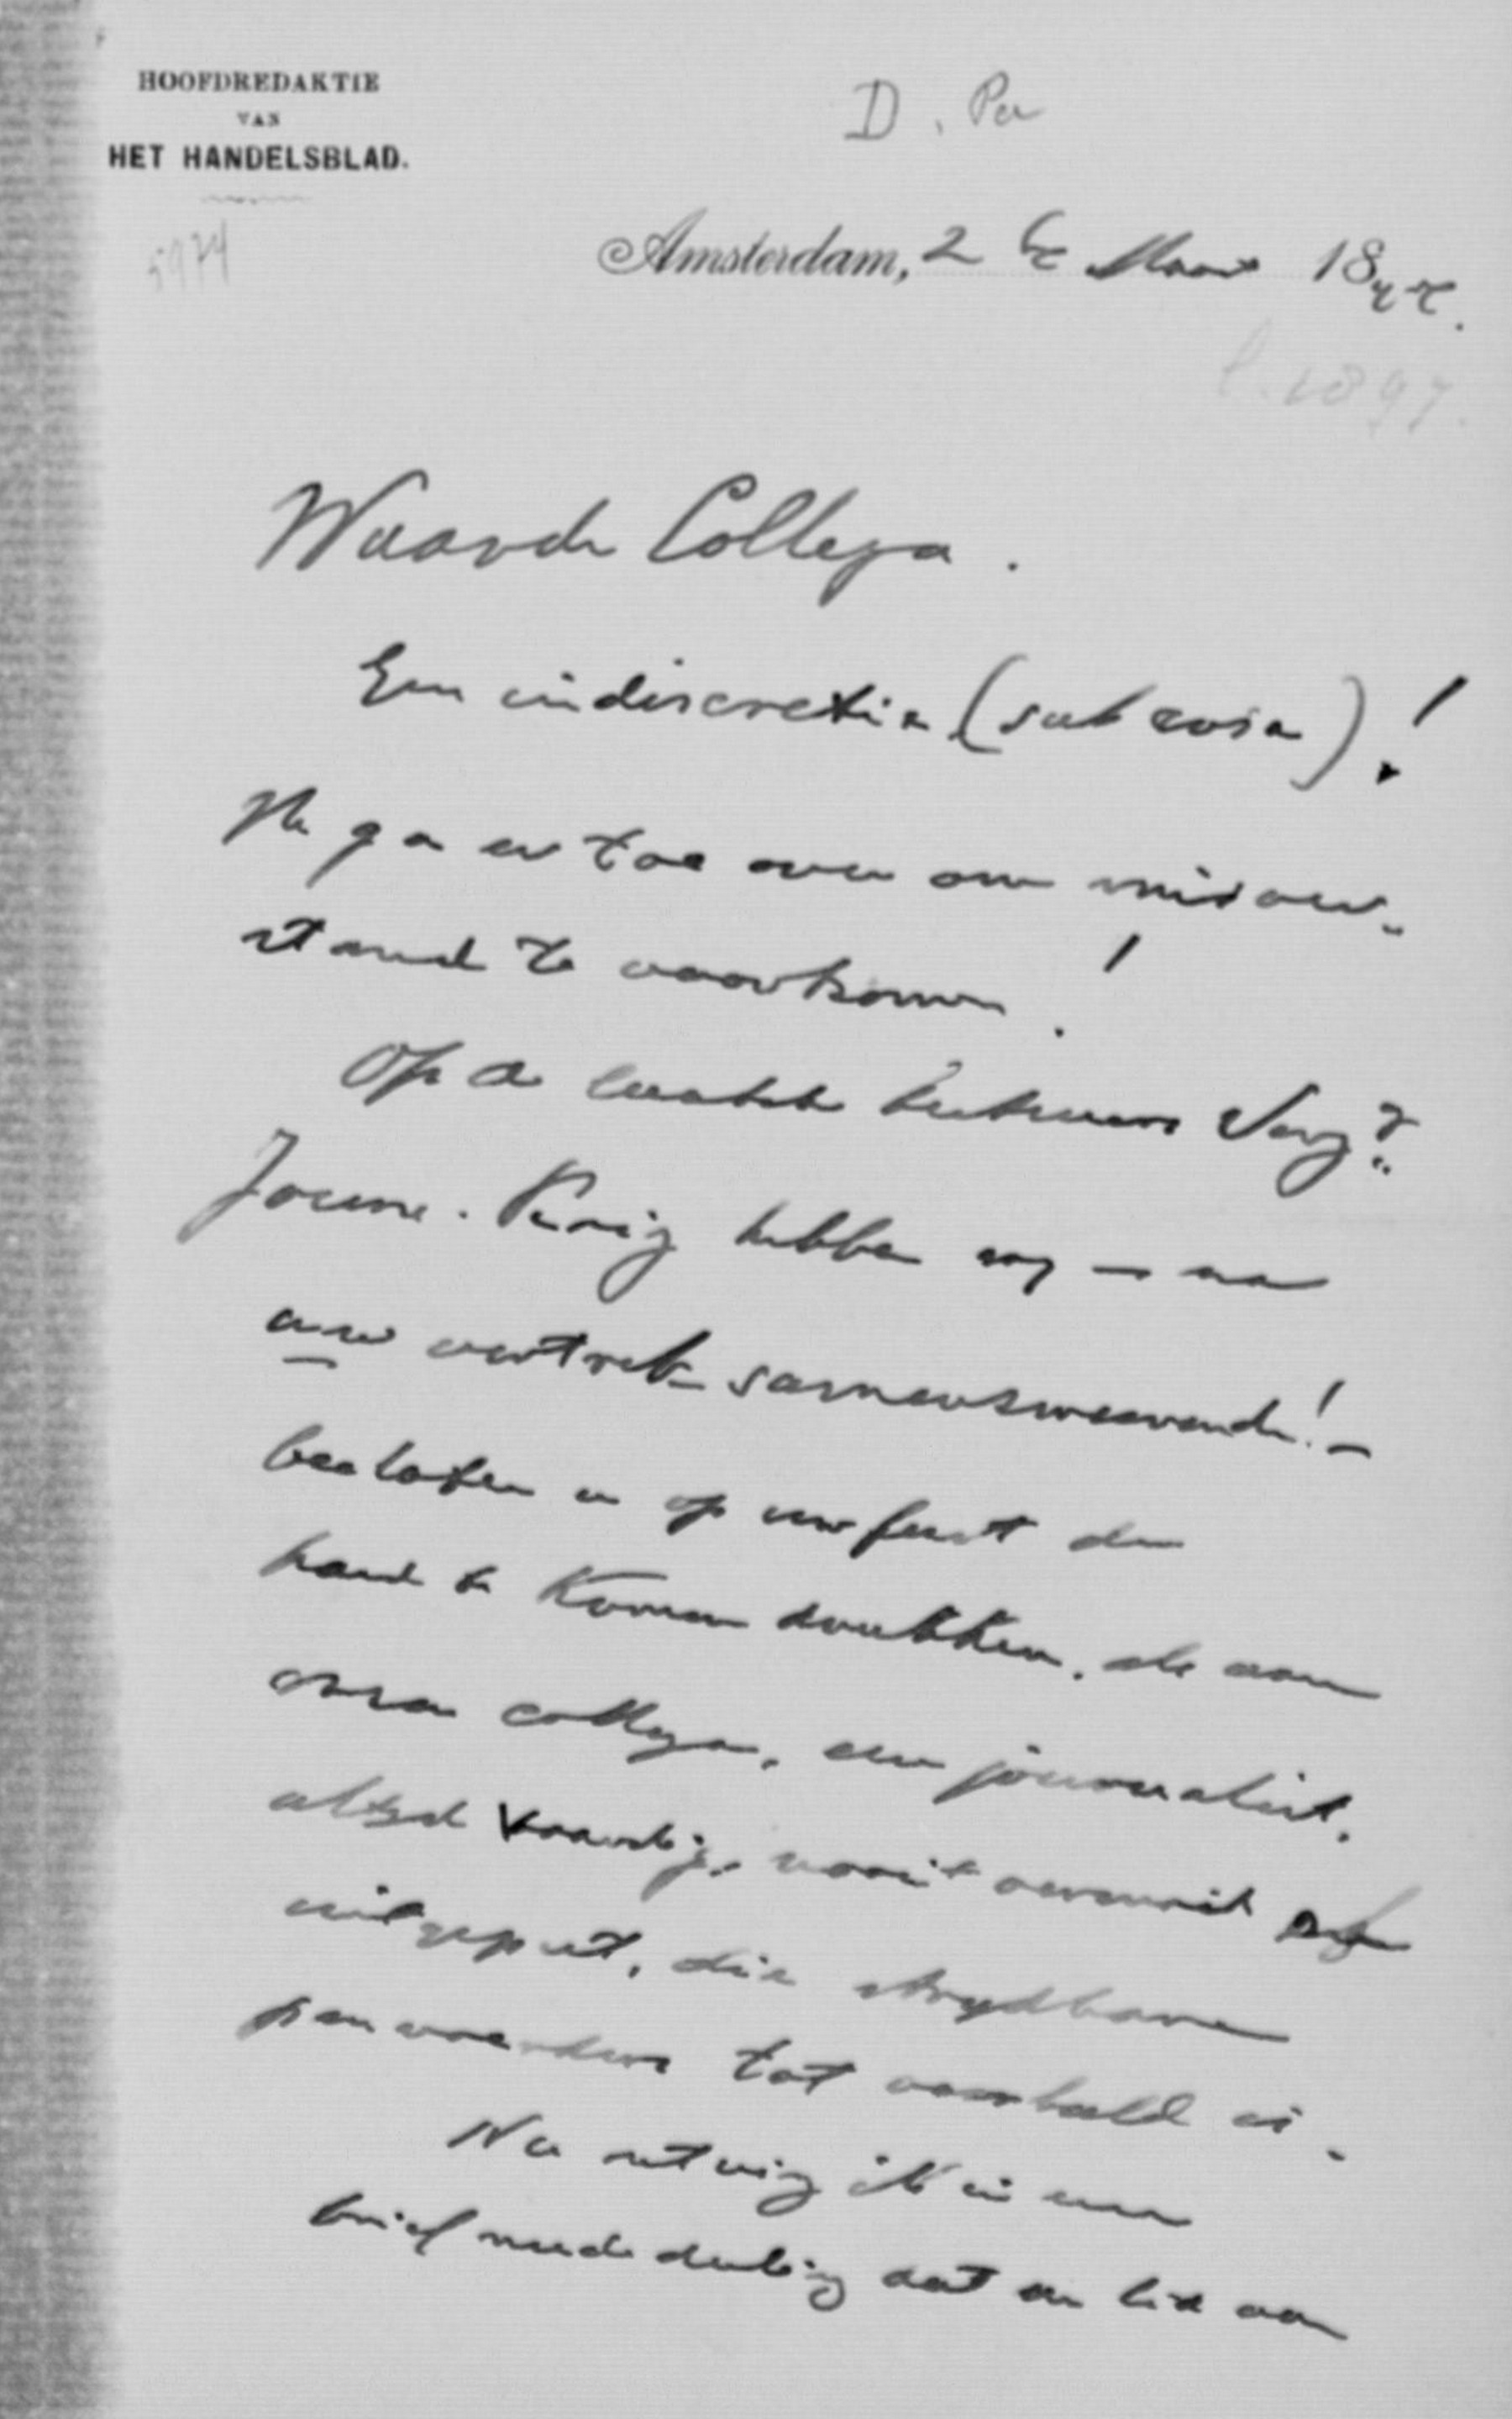 HOOFDREDAKTIE
VAN
HET HANDELSBLAD.
D. Pa
5974
Amsterdam, 2 Maart 1897.
1897.
Waarde Collega.
Een indiscretie (sub rosa)!
Ik ga er toe over om misver-
stand te voorkomen!
Op de laatste bestuurs Verg.
Journ. Kring hebben wy — na
uw vertrek samenzweerende! —
besloten u op uw feest de
hand te komen drukken, als aan
onzen collega, den journalist,
altijd vaardig, nooit vermoeid of
uitgeput, die strydbare
penvoerders tot voorbeeld is.
Nu ontving ik in een
brief mededeeling dat en lid van